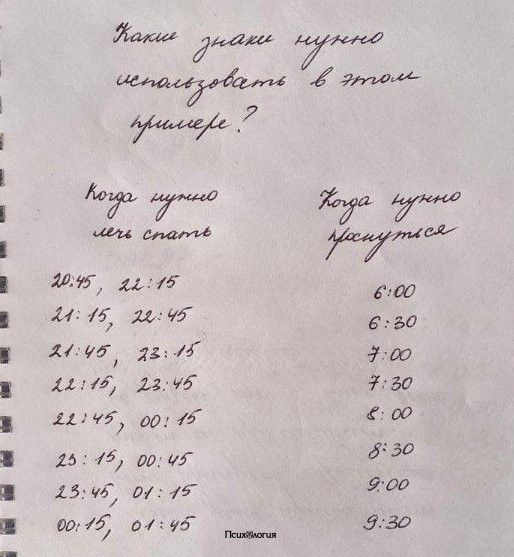 Какие знаки нужно
использовать в этом
примере?
Когда нужно
лечь спать
Когда нужно
проснуться
20:45, 22:15 6:00
21:15, 22:45 6:30
21:45, 23:15 7:00
22:15, 23:45 7:30
22:45, 00:15 8:00
23:15, 00:45 8:30
23:45, 01:15 9:00
00:15, 01:45 9:30
Психология